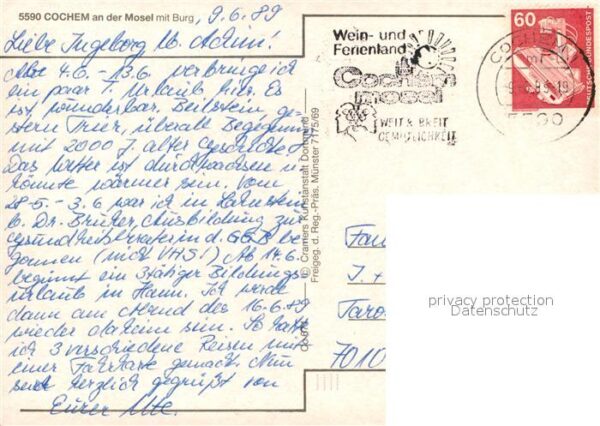 5590 COCHEM an der Mosel mit Burg
9.6.89
Liebe Ingeborg u. Achim!
Vom 4.6. - 13.6. verbringe ich
ein paar T. Urlaub hier. Es
ist wunderbar. Beilstein, ge-
stern Trier, überall Begegnung
mit 2000 J. alter Geschichte!
Das Wetter ist durchwachsen u.
könnte wärmer sein. Vom
28.5. - 3.6. war ich in Lahnstein
b. Dr. Bruker, Ausbildung zur
Gesundheitsberaterin d. GGB be-
gonnen (nicht VHS!) Ab 14.6.
beginnt ein 3tägiger Bildungs-
urlaub in Hann. Ich werde
dann am Abend des 16.6.89
wieder daheim sein. So habe
ich 3 verschiedene Reisen mit
einer Fahrkarte gemacht. Nun
seid herzlich gegrüßt von
Eurer Ute.
© Cramers Kunstanstalt Dortmund
Freigeg. d. Reg.-Präs. Münster 7175/69
Wein- und
Ferienland
Cochem
mosel
WEIT & BREIT
GEMÜTLICHKEIT
60
DEUTSCHE BUNDESPOST
COCHEM 1
5590
Fam
I. +
7010
privacy protection
Datenschutz